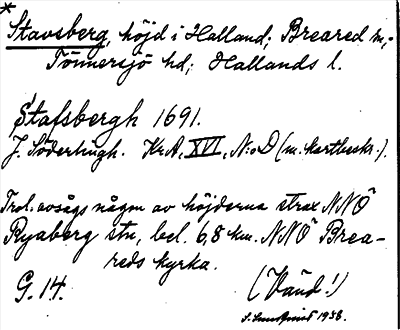 *
Stavsberg, höjd i Halland; Breared sn;
Tönnersjö hd; Hallands l.
Stafsbergh 1691.
J. Söderhugh. Kr.A, XVI, N:o D (m. kartbeskr.).
Trol. avsågs någon av höjderna strax NNÖ
Ryaberg stn, bel. 6,8 km. NNÖ Brea-
reds kyrka.
G. 14. (Vänd!)
1938.